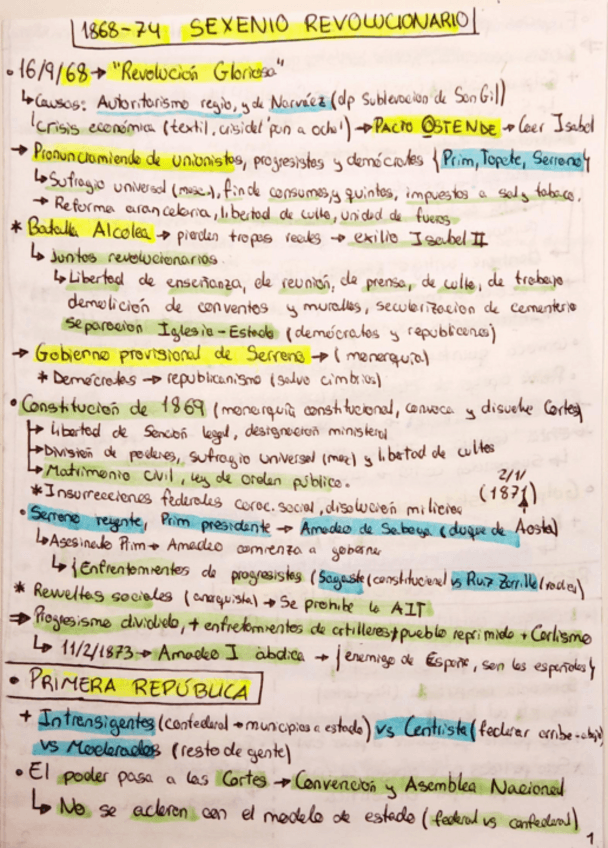 1868-74 SEXENIO REVOLUCIONARIO
• 16/9/68 → "Revolución Gloriosa"
↳ Causas: Autoritarismo regio, y de Narváez (dp Sublevacion de San Gil)
↳ Crisis económica (textil, crisis del pan a ocho!) → PACTO OSTENDE → Caer Isabel
→ Pronunciamiento de unionistas, progresistas y demócratas { Prim, Topete, Serrano }
↳ Sufragio universal (masc.), fin de consumos, y quintas, impuestos a sal y tabaco.
→ Reforma arancelaria, libertad de culto, unidad de fueros
* Batalla Alcolea → pierden tropas reales → exilio Isabel II
↳ Juntas revolucionarias
↳ Libertad de enseñanza, de reunión, de prensa, de culto, de trabajo
demolición de conventos y murallas, secularizacion de cementerio
separacion Iglesia-Estado (demócratas y republicanos)
→ Gobierno provisional de Serrano → (monarquía)
* Demócratas → republicanismo (salvo cimbrios)
• Constitución de 1869 (monarquía constitucional, convoca y disuelve Cortes)
→ libertad de Sanción legal, designacion ministerial
→ División de poderes, sufragio universal (mas) y libertad de cultos
↳ Matrimonio civil, ley de orden público.
* Insurrecciones federales carac. social, disolución milicias
2/1/
(1871)
• Serrano regente, Prim presidente → Amadeo de Saboya (duque de Aosta)
↳ Asesinado Prim → Amadeo comienza a gobernar
↳ { Enfrentamientos de progresistas (Sagasta (constitucional vs Ruiz Zorrilla (radical)
* Revueltas sociales (anarquista) → Se prohibe la AIT
⇒ Progresismo dividido, + enfretamientos de artilleros, pueblo reprimido + Carlismo
↳ 11/2/1873 → Amadeo I abdica → { enemigo de España, son los españoles }
• PRIMERA REPÚBLICA
+ Intransigentes (confederal → municipios a estado) vs Centrista (federar arriba-abajo)
vs Moderados (resto de gente)
• El poder pasa a las Cortes → Convención y Asamblea Nacional
↳ No se acleran con el modelo de estado (federal vs confederal)
1